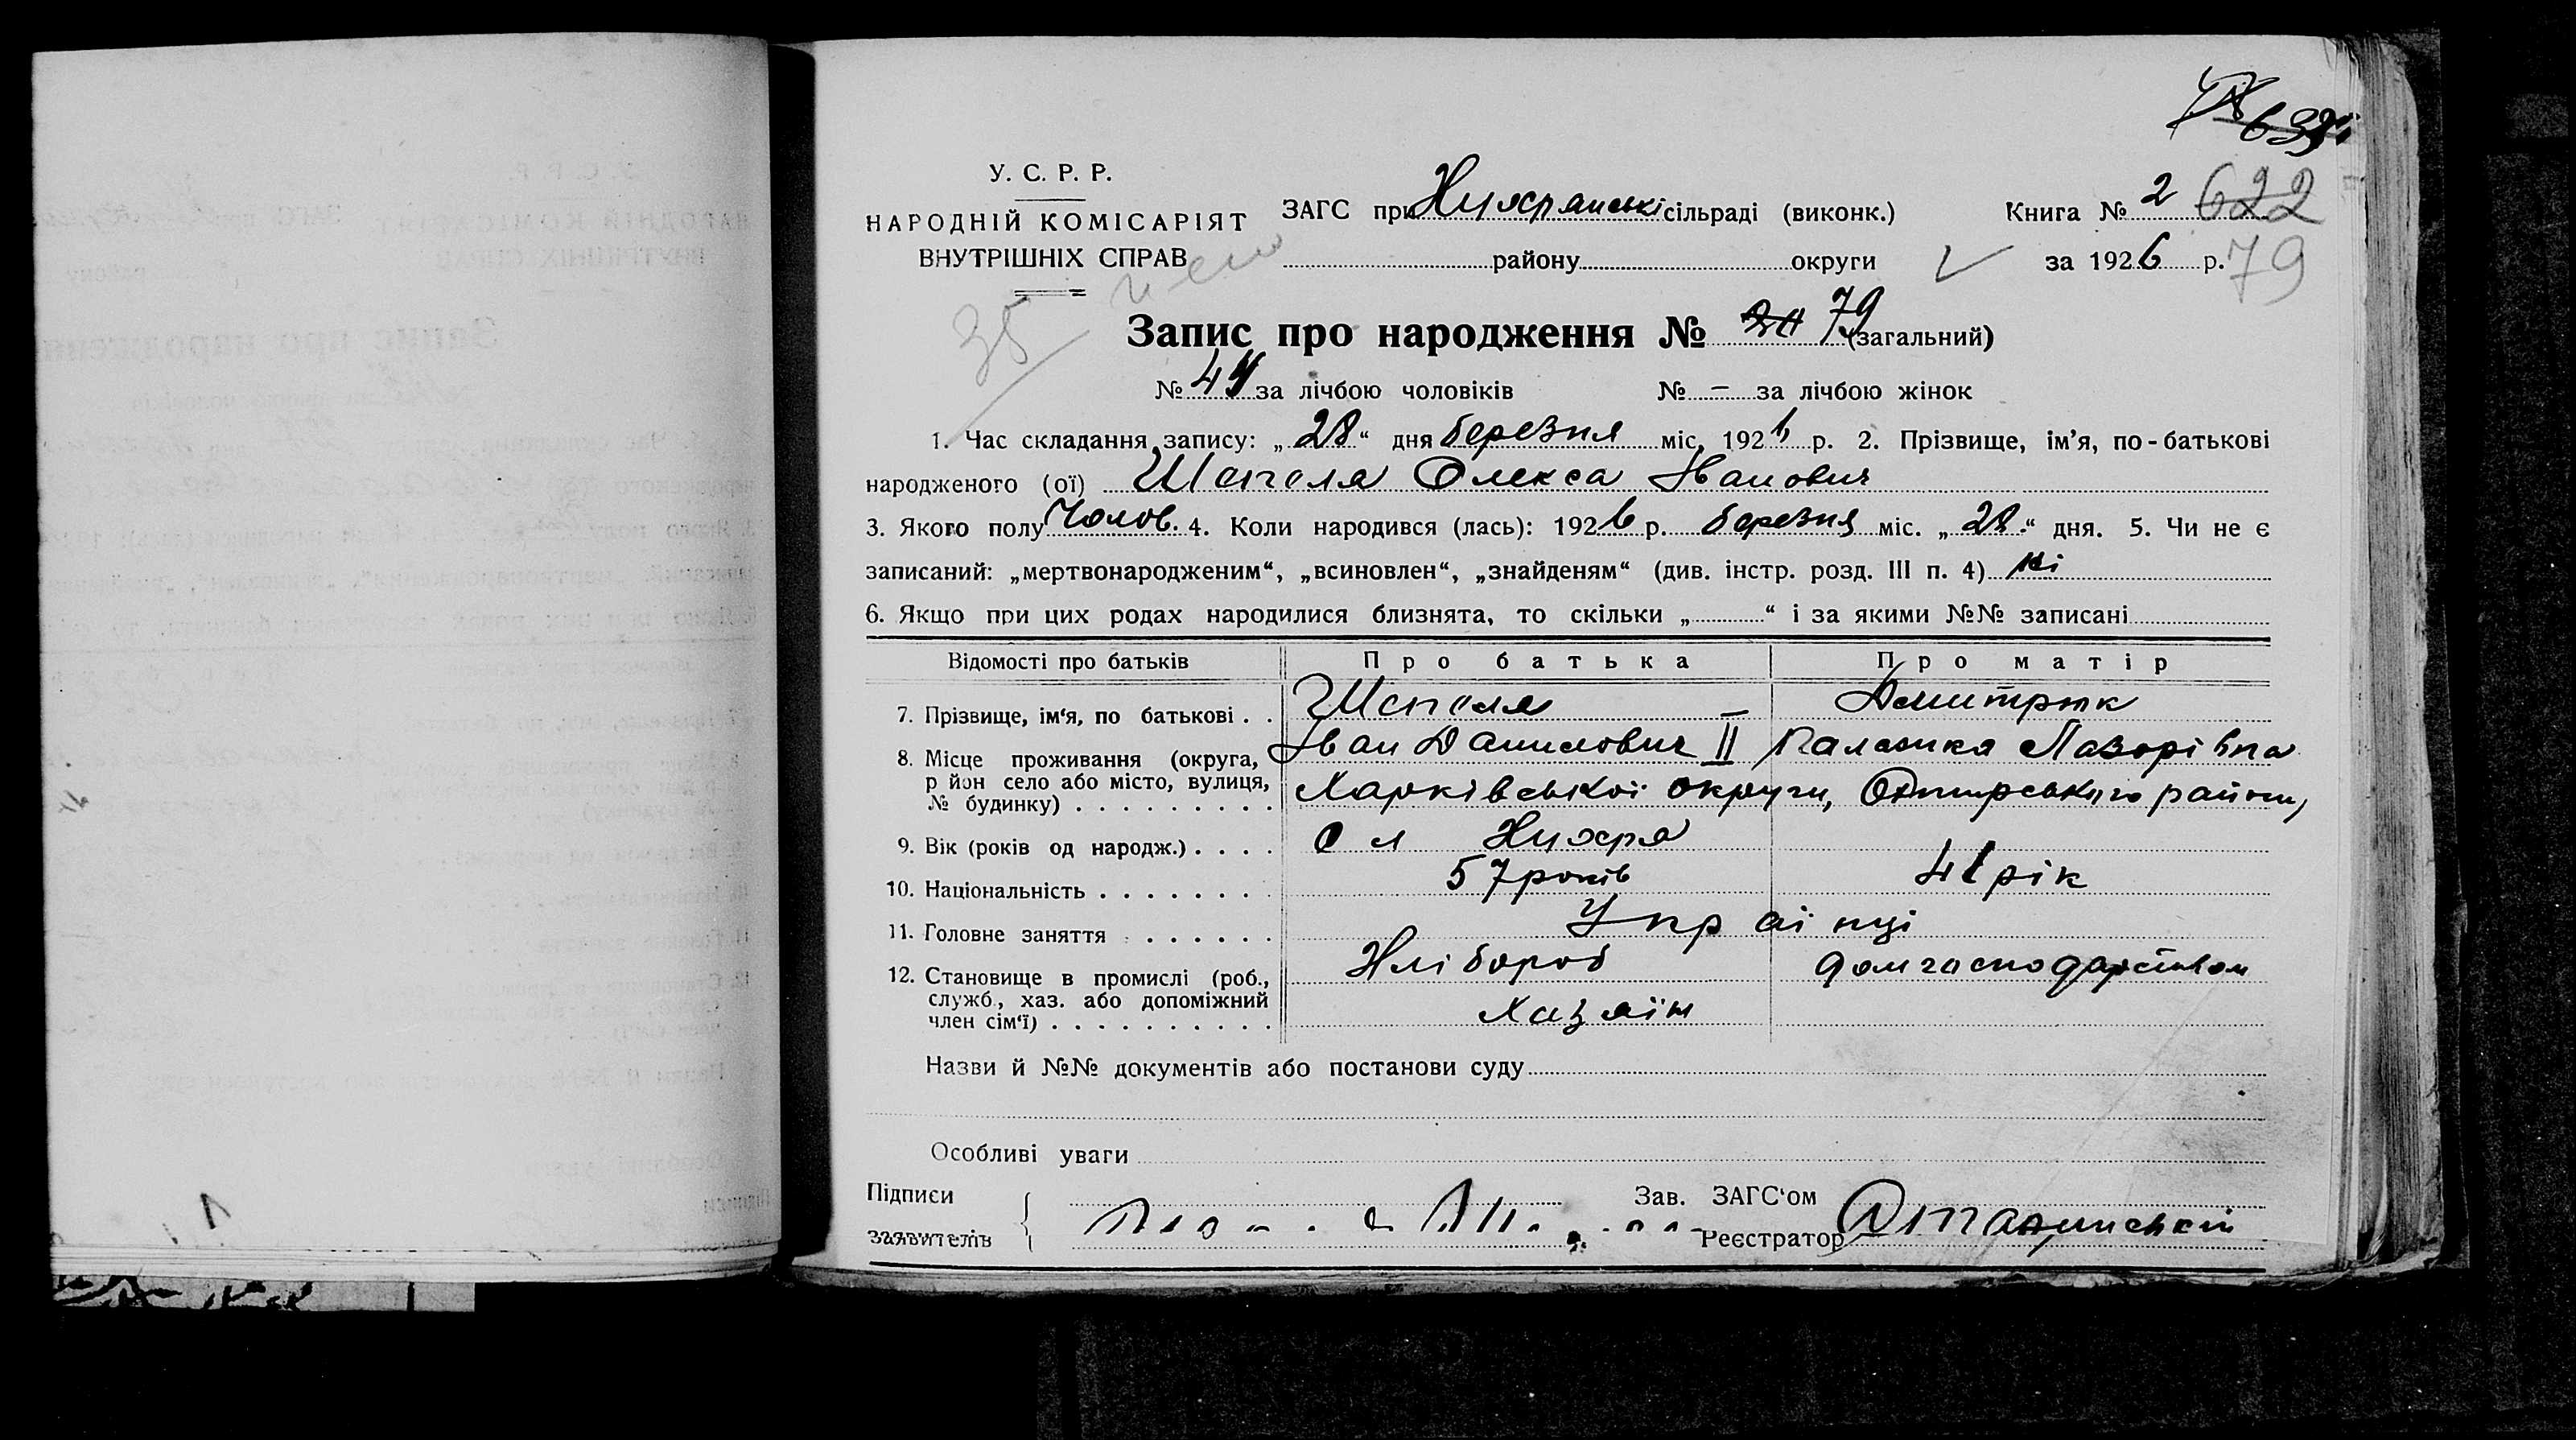 У. С. Р. Р.
НАРОДНІЙ КОМІСАРІЯТ
ВНУТРІШНІХ СПРАВ
ЗАГС при сільраді (виконк.)
Книга № 2 622
району округи
за 1926 р. 79
35
Запис про народження № 79 (загальний)
№ 44 за лічбою чоловіків № – за лічбою жінок
1. Час складання запису: „28“ дня березня міс, 1926 р. 2. Прізвище, ім'я, по-батькові
народженого (ої) Шаполя Олекса Іванович
3. Якого полу Чолов. 4. Коли народився (лась): 1926 р. березня міс. „28.“ дня. 5. Чи не є
записаний: „мертвонародженим“, „всиновлен“, „знайденям“ (див. інстр. розд. III п. 4) Ні
6. Якщо при цих родах народилися близнята, то скільки „ “ і за якими №№ записані
Відомості про батьків Про батька Про матір
7. Прізвище, ім'я, по батькові . . Шаполя – Дмитрюк
Іван Данилович II Палажка Лазорівна
8. Місце проживання (округа, р йон село або місто, вулиця, № будинку) . . . . . . . . . Харківської округи, району,
9. Вік (років од народж.) . . . .
57 років 41 рік
10. Національність . . . . . . .
Українці
11. Головне заняття . . . . . .
Хлібороб домгосподарством
12. Становище в промислі (роб., служб., хаз. або допоміжний член сім'ї) . . . . . . . . . . Хазяїн
Назви й №№ документів або постанови суду
Особливі уваги
Підписи
заявителів
Зав. ЗАГС'ом
Реєстратор